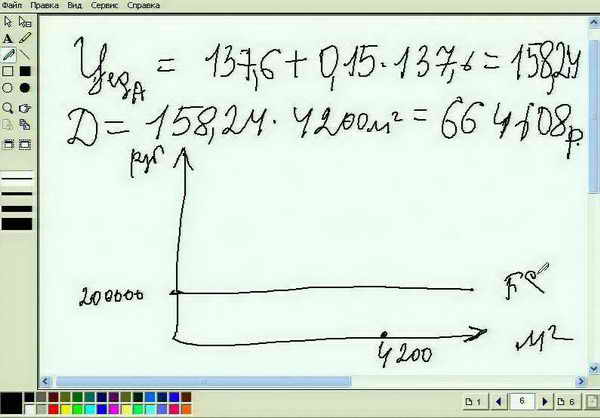 Файл Правка Вид Сервис Справка
Ц едА = 137,6 + 0,15 · 137,6 = 158,24
Д = 158,24 · 4200м² = 664608р.
руб
200000
FC
4200
м²
1
6
6